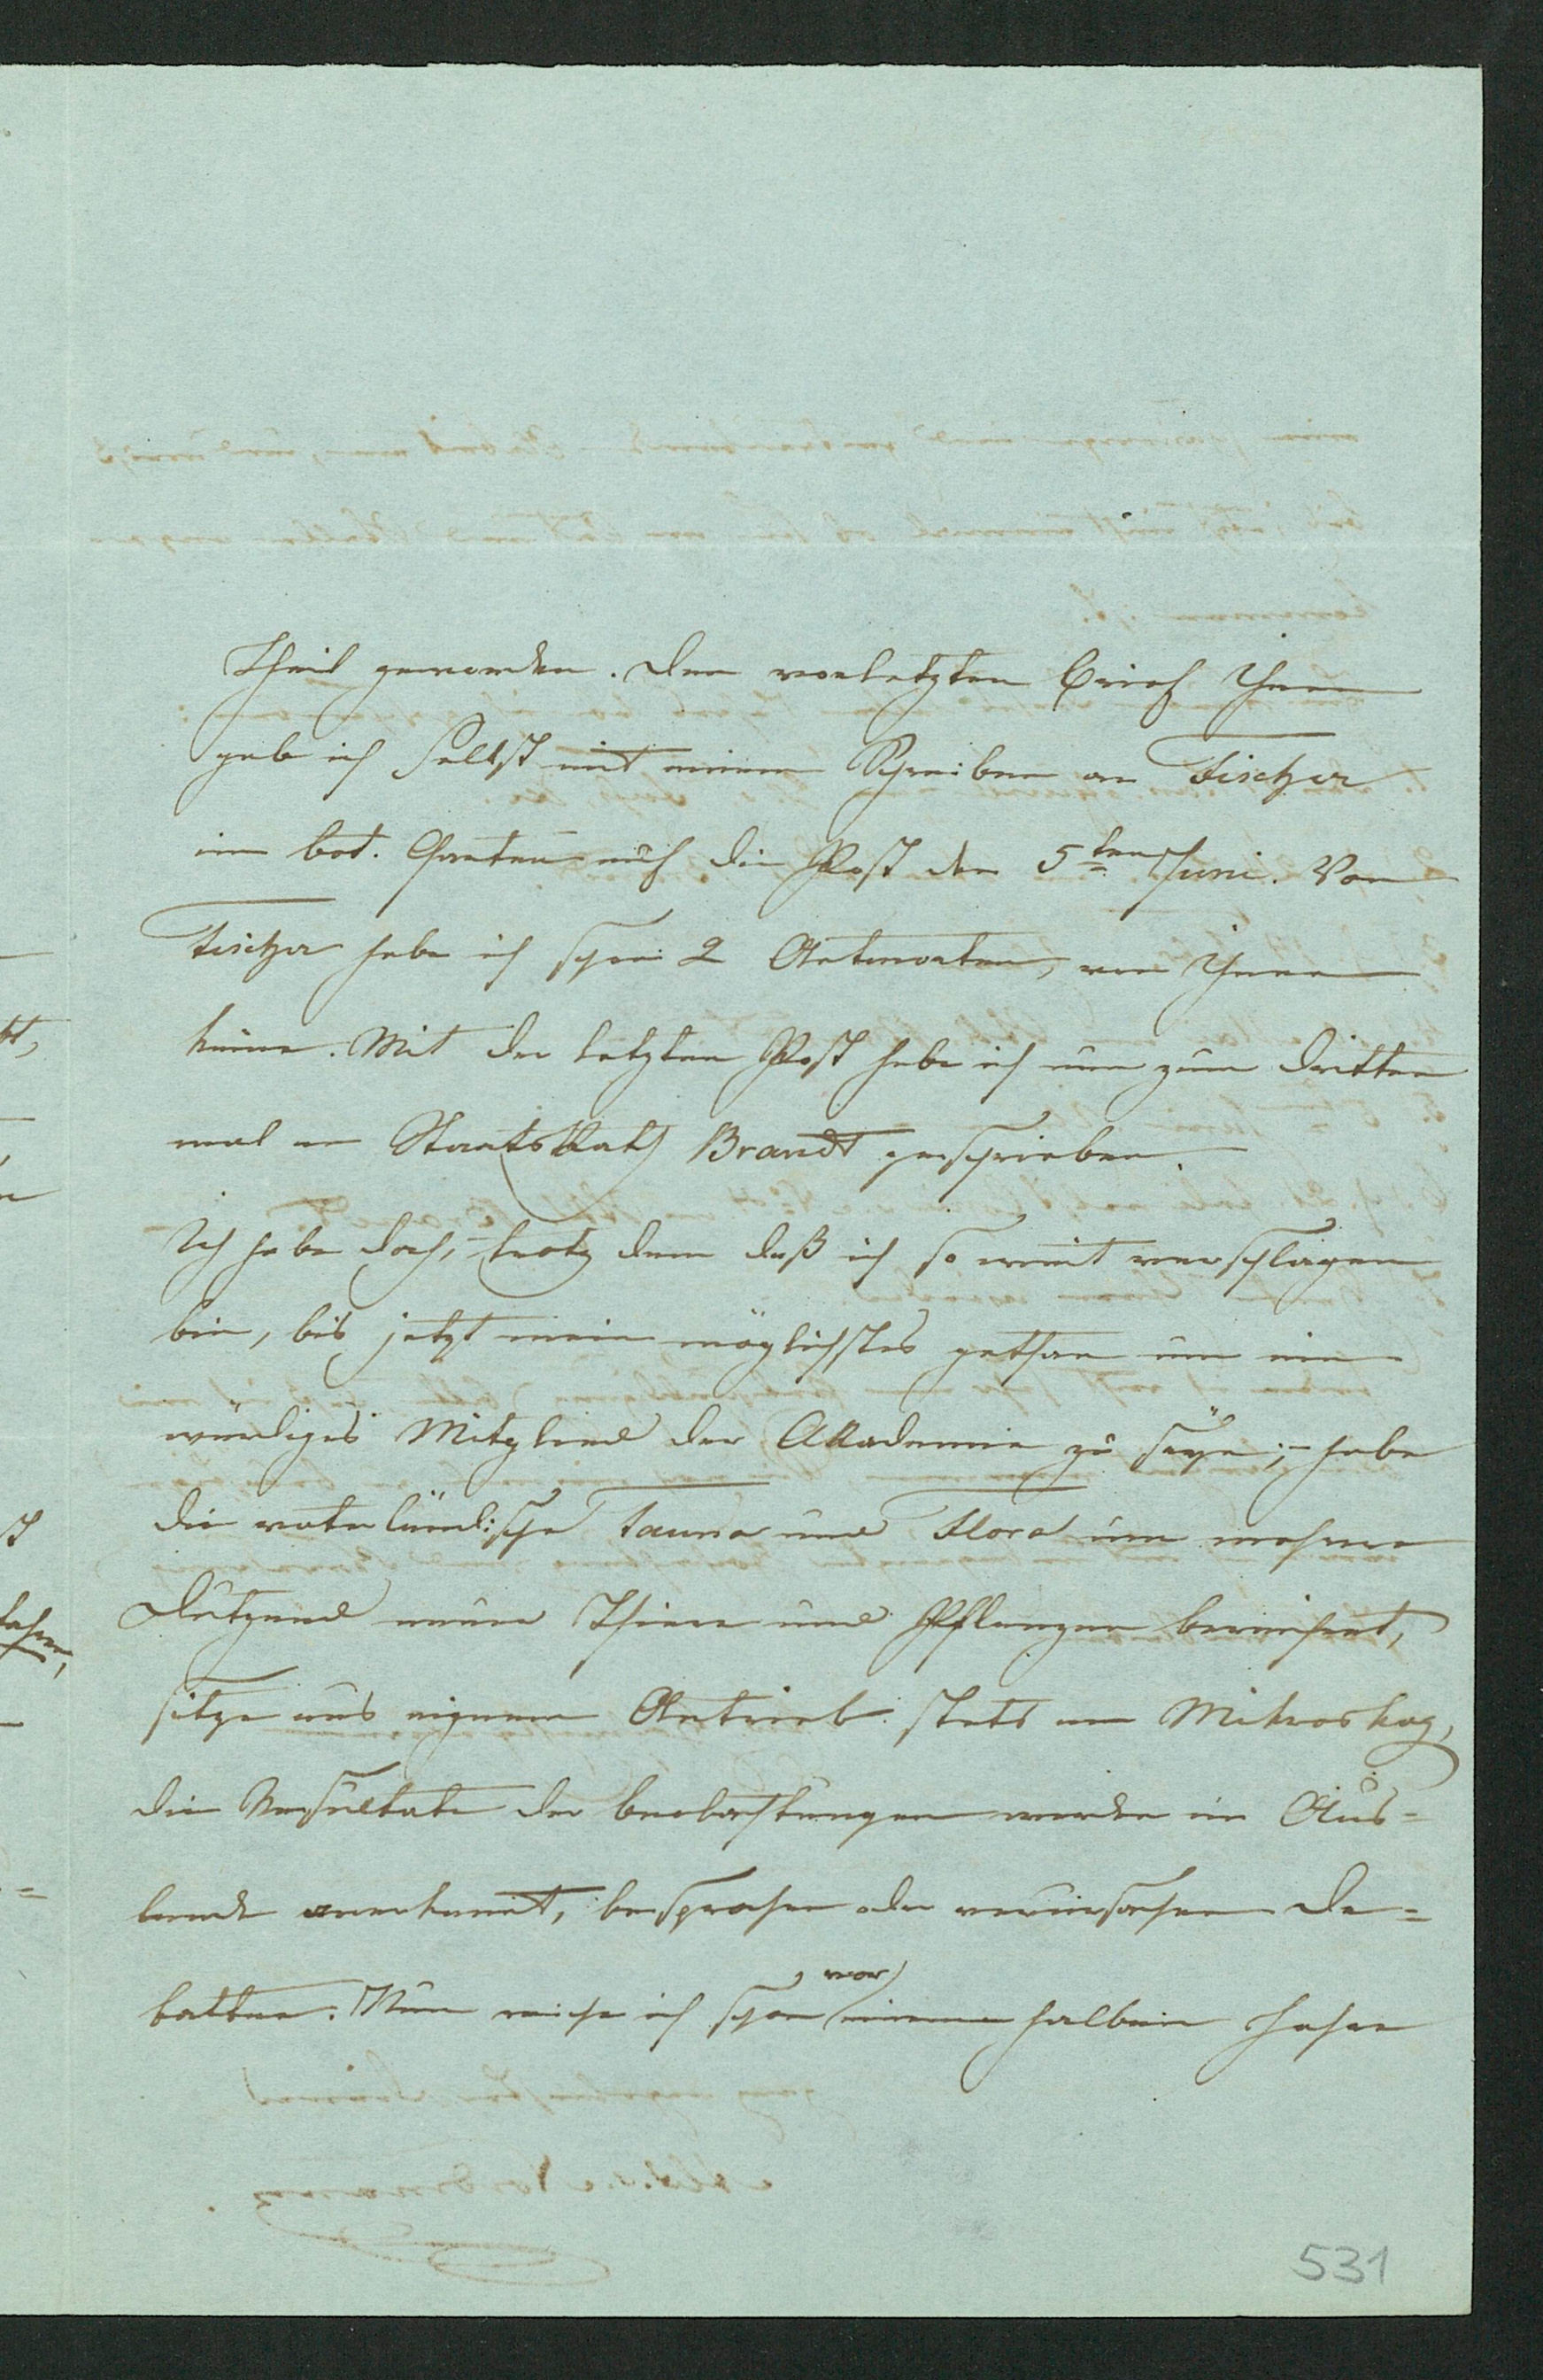 Theil geworden. Den vorletzten Brief Ihnen
gab ich selbst mit einem Schreiben an Fischer
im bot. Garten auf die Post den 5ten Juni. Von
Fischer habe ich schon 2 Antworten, von Ihnen
keine. Mit der letzten Post habe ich nun zum dritten
mal an Staatsrath Brandt geschrieben.
Ich habe doch, trotz dem daß ich so weit verschlagen
bin, bis jetzt mein möglichstes gethan um ein
würdiges Mitglied der Akademie zu seyn;- habe
die vaterländische Fauna und Flora um mehrere
Dutzend neuer Thiere und Pflanzen bereichert,
sitze aus eignem Antrieb stets am Mikroskop,
die Resultate der Beobachtungen werden im Aus-
lande anerkannt, besprochen oder verursachen De-
batten. Nun reiche ich schon vor einem halben Jahre
531